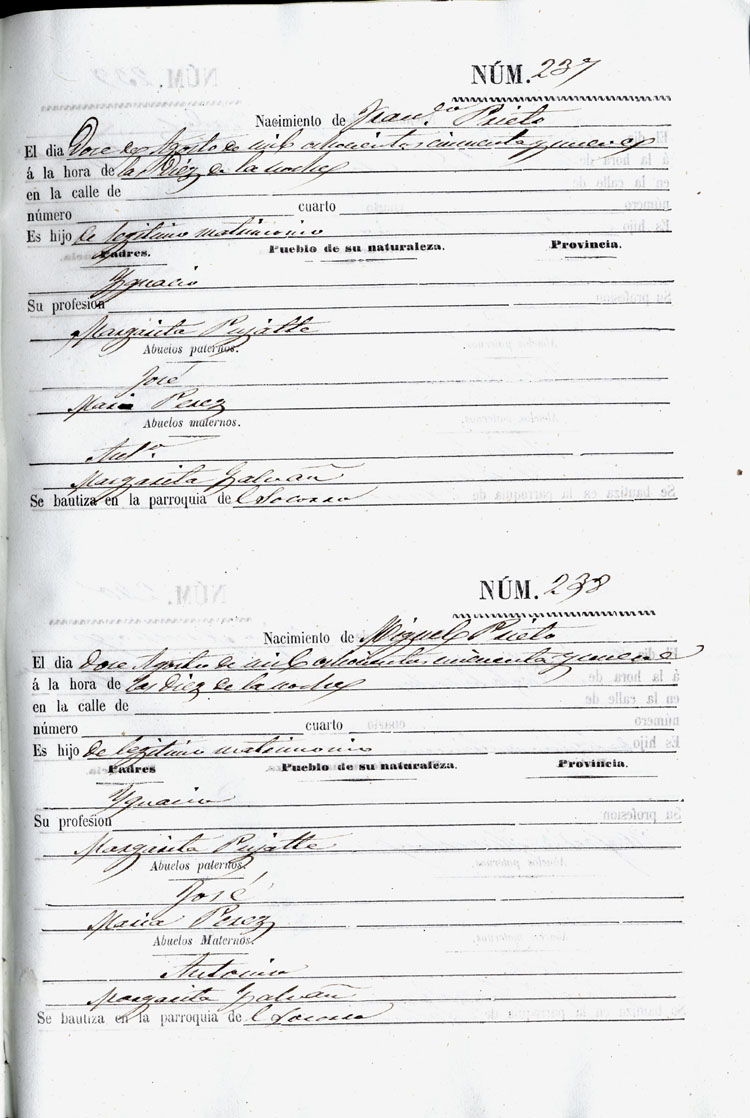 NÚM. 237
Nacimiento de Fran.co Prieto
El dia Doce de Agosto de mil ochocientos cincuenta y nueve
á la hora de las Diez de la noche
en la calle de
número cuarto
Es hijo de legitimo matrimonio
Padres. Pueblo de su naturaleza. Provincia.
Ygnacio
Su profesion
Margarita Pujalte
Abuelos paternos.
José
Maria Perez
Abuelos maternos.
Ant.o
Margarita Galvañ
Se bautiza en la parroquia del Socorro
NÚM. 238
Nacimiento de Miguel Prieto
El dia doce Agosto de mil ochocientos cincuenta y nueve
á la hora de las diez de la noche
en la calle de
número cuarto
Es hijo de legitimo matrimonio
Padres Pueblo de su naturaleza. Provincia.
Ygnacio
Su profesion
Margarita Pujalte
Abuelos paternos.
José
Maria Perez
Abuelos Maternos.
Antonio
Margarita Galvañ
Se bautiza en la parroquia de l Socorro